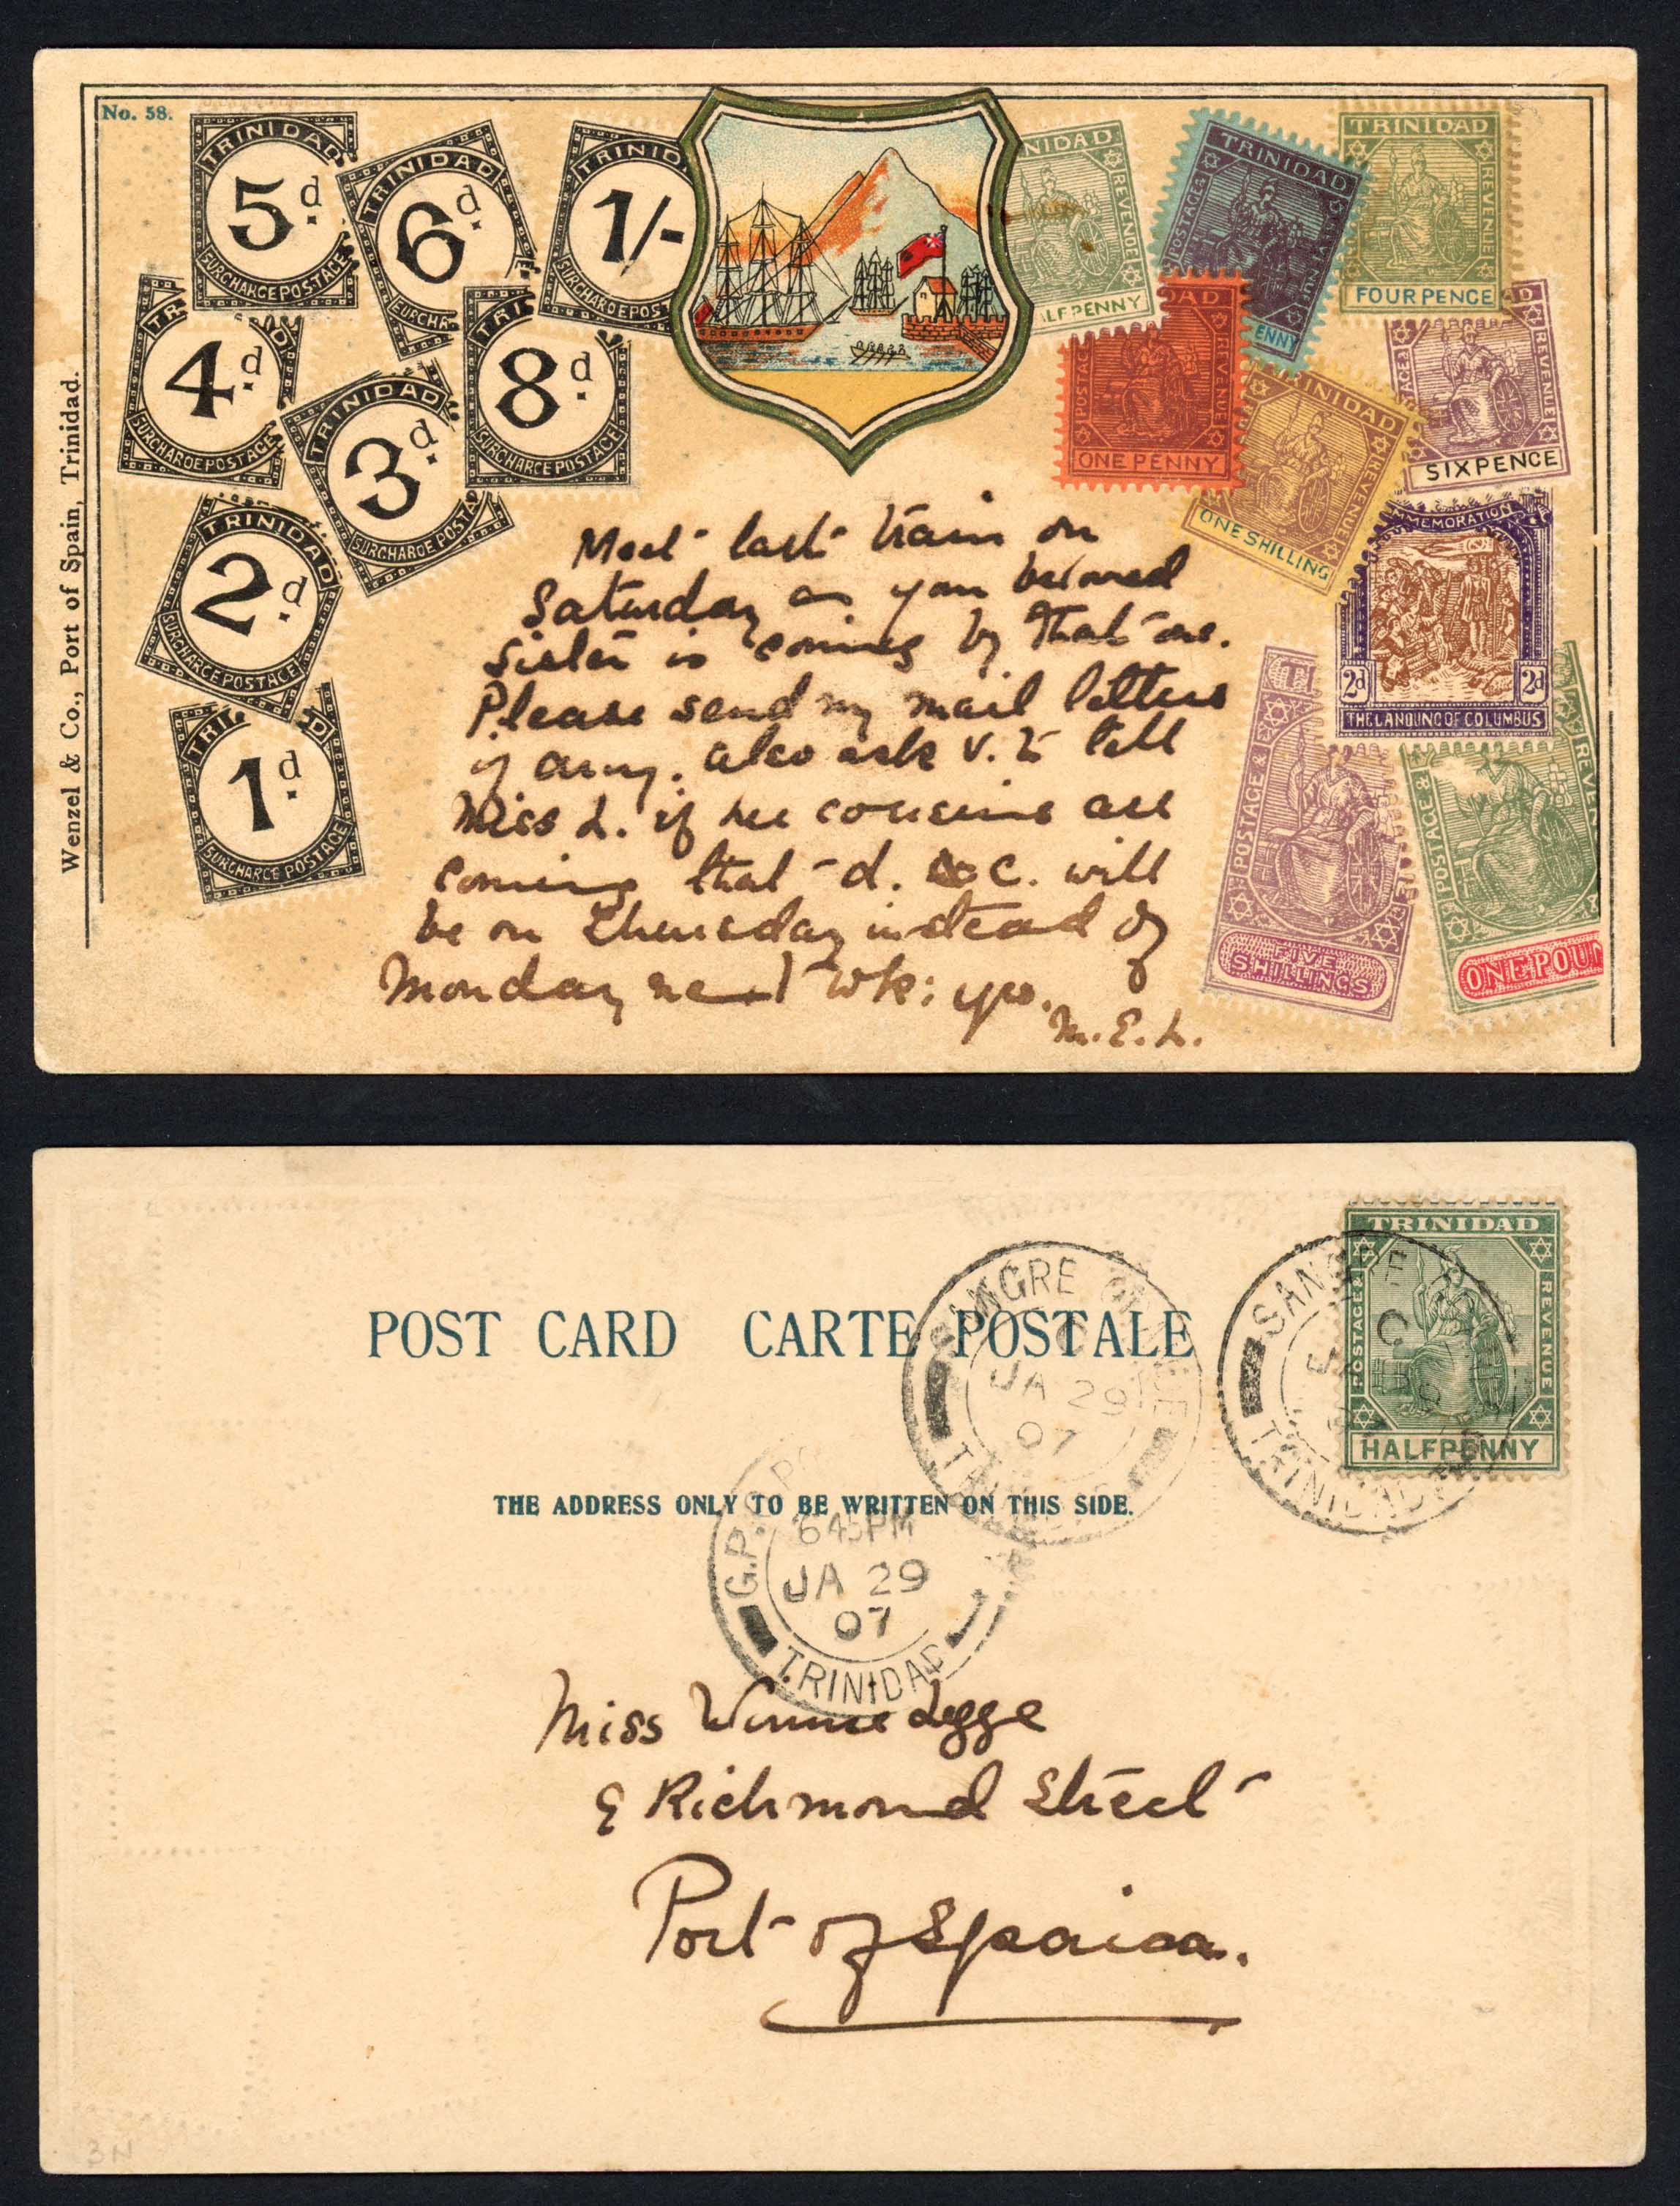 No. 58.
Wenzel & Co., Port of Spain, Trinidad.
TRINIDAD
5d.
SURCHARGE POSTAGE
TRINIDAD
6d.
SURCHA
TRINID
1/-
SURCHARGE POS
TR D
4d.
SURCHARGE POSTAGE
TRINIDAD
3d.
SURCHARGE POSTA
TRI
8d.
SURCHARGE POSTAGE
TRINIDAD
2d.
SURCHARGE POSTAGE
TRI D
1d.
SURCHARGE POSTAGE
NIDAD
REVENUE
ALFPENNY
TRINIDAD
POSTAGE
ENNY
TRINIDAD
REVENUE
FOURPENCE
DAD
POSTAG
REVENUE
ONE PENNY
TRINIDAD
REVENUE
ONE SHILLING
D
REVENUE
SIXPENCE
MEMORATION
2d 2d
THE LANDING OF COLUMBUS
TI
POSTAGE &
FIVE
SHILLINGS
POSTAGE &
REVEN
ONE POUN
Meet last train on
Saturday as your beloved
sister is coming by that one.
Please send my mail letters
if any. also ask V. to tell
Miss L. if her cousins are
coming that d. C. will
be on Thursday instead of
Monday next wk: yrs.
M. E. L.
POST CARD CARTE POSTALE
THE ADDRESS ONLY TO BE WRITTEN ON THIS SIDE.
TRINIDAD
POSTAGE &
REVENUE
HALFPENNY
SANGRE GRANDE
C
JA 29
07
TRINIDAD
SANGRE
C
TRINIDAD
G.P.O.
6 45PM
JA 29
07
TRINIDAD
Miss Winnie Legge
Richmond Street
Port of Spain.
3N